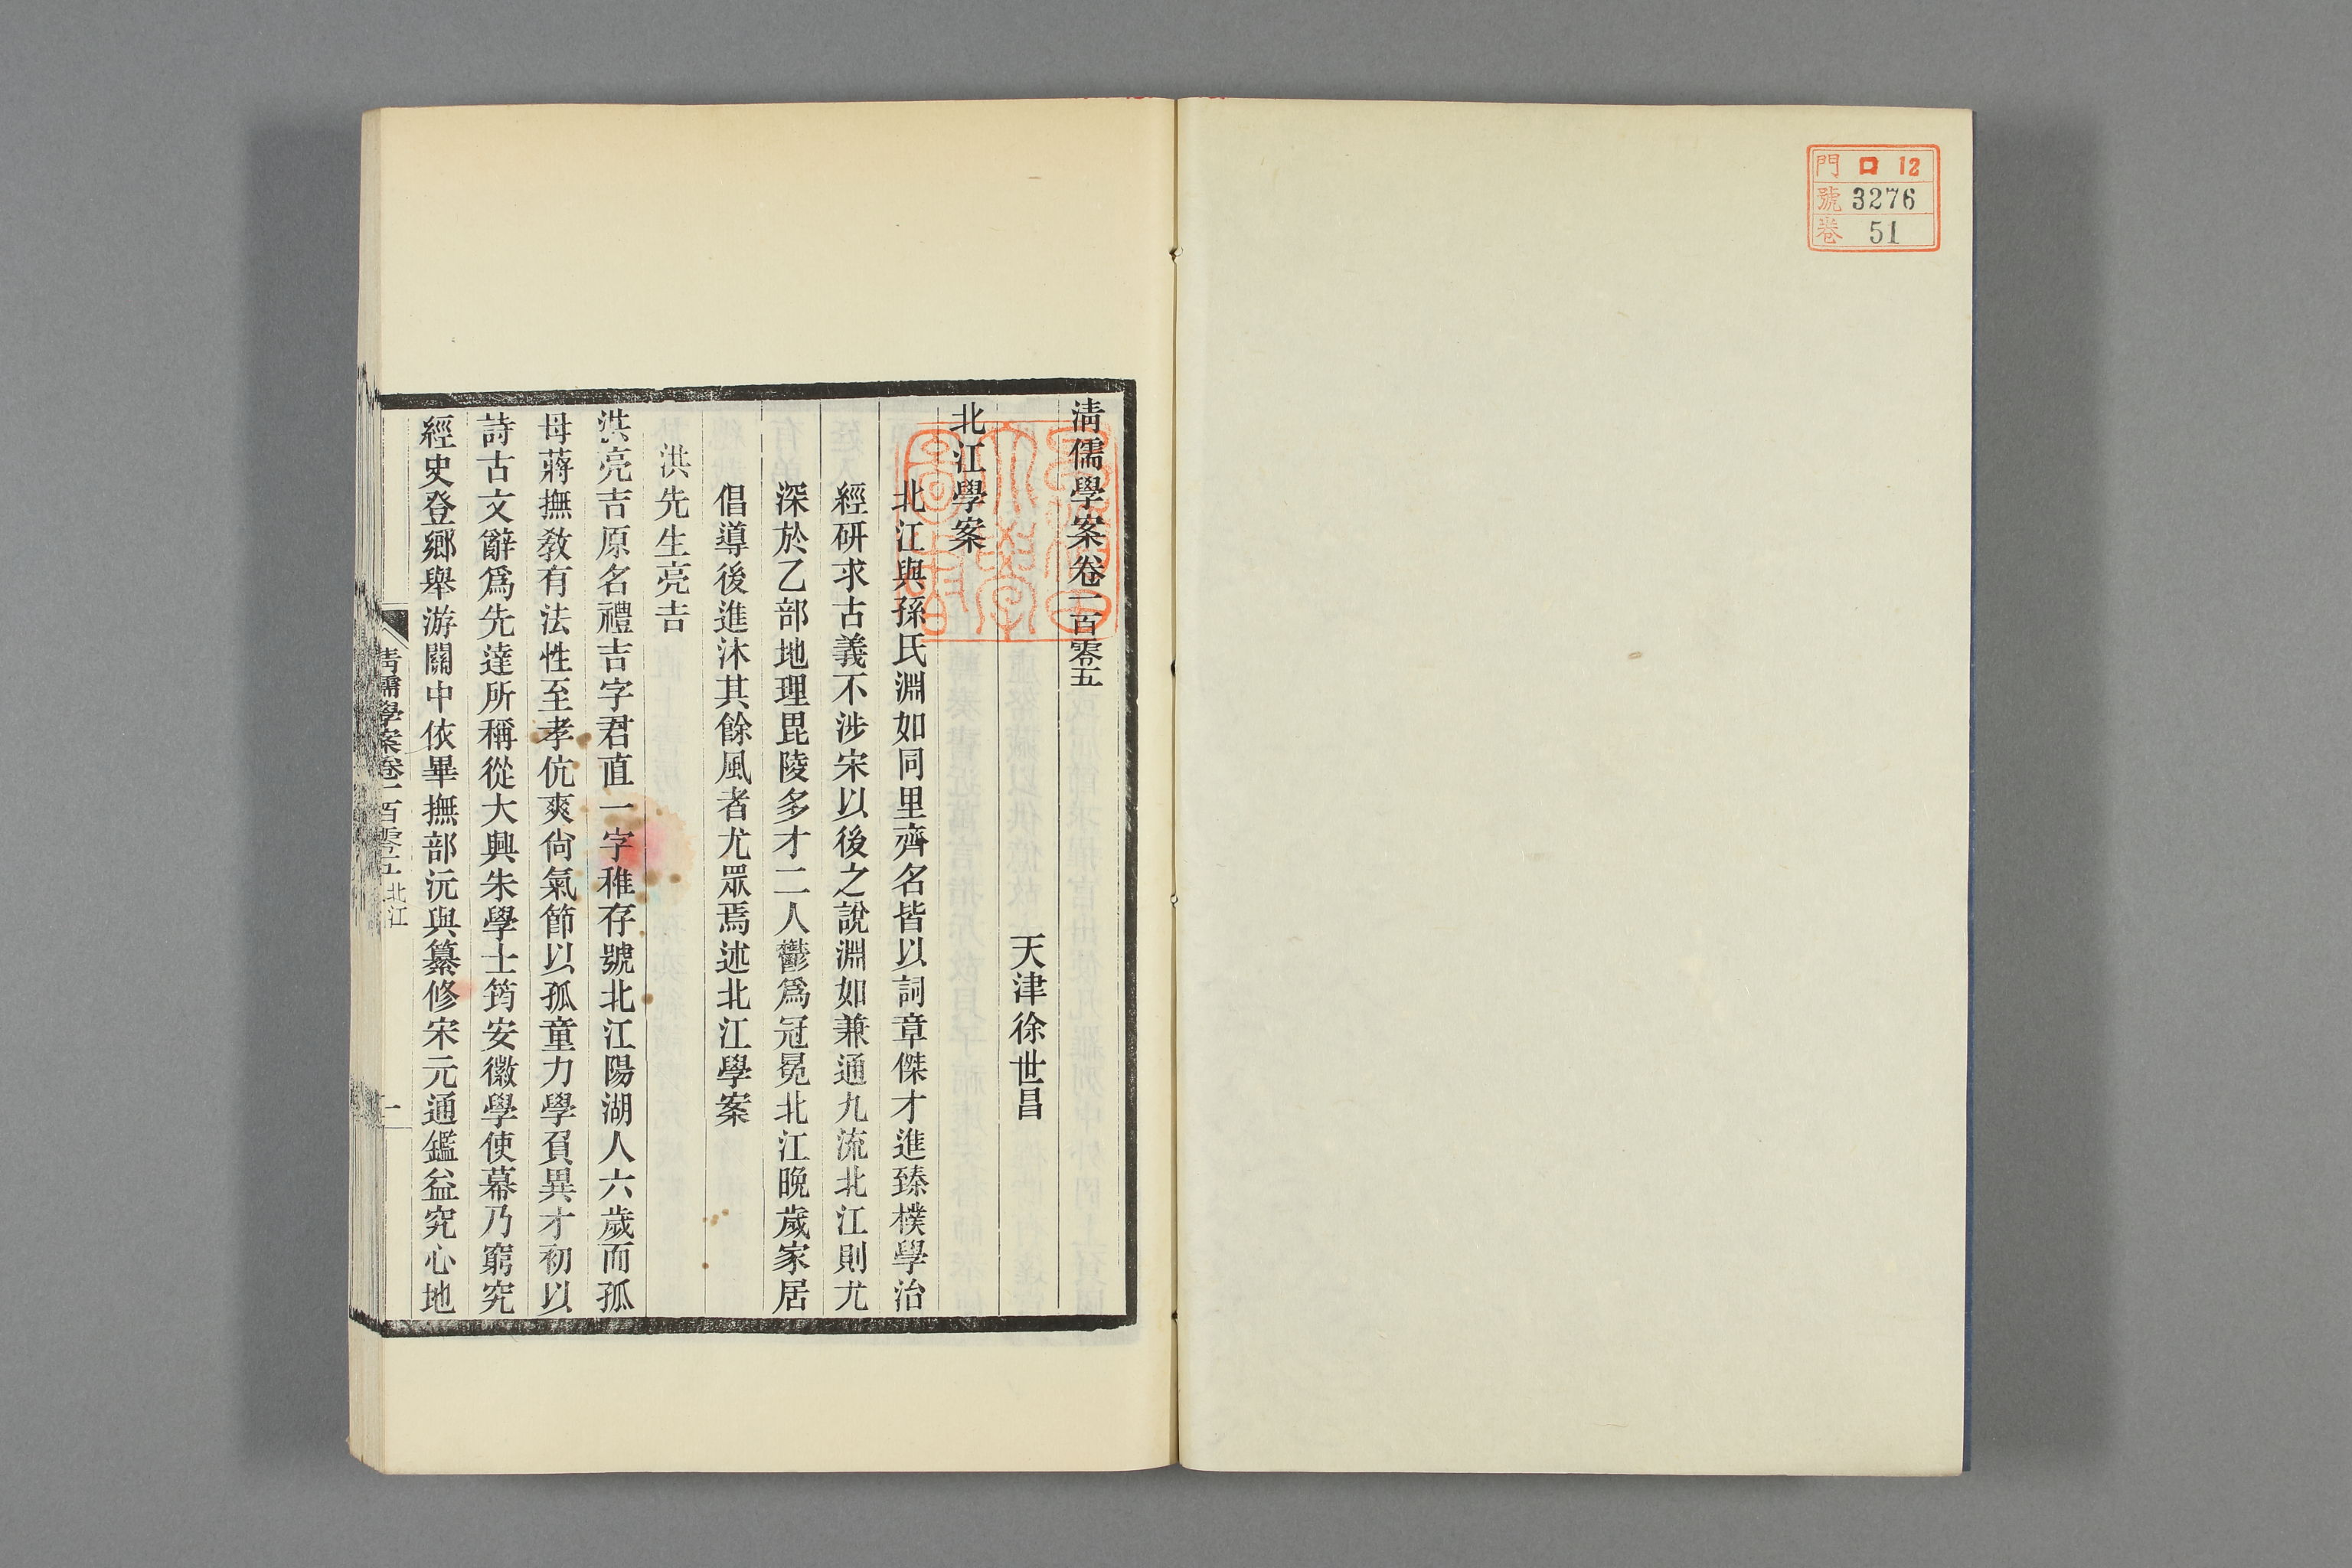 門 ロ 12
號 3276
卷 51
清儒學案卷一百零五
天津徐世昌
北江學案
北江與孫氏淵如同里齊名皆以詞章傑才進臻樸學治
經研求古義不涉宋以後之說淵如兼通九流北江則尤
深於乙部地理毘陵多才二人鬱爲冠冕北江晚歲家居
倡導後進沐其餘風者尤眾焉述北江學案
洪先生亮吉
洪亮吉原名禮吉字君直一字稚存號北江陽湖人六歲而孤
母蔣撫敎有法性至孝伉爽尙氣節以孤童力學負異才初以
詩古文辭爲先達所稱從大興朱學士筠安徽學使幕乃窮究
經史登鄉舉游關中依畢撫部沅與纂修宋元通鑑益究心地
清儒學案卷一百零五 北江
一